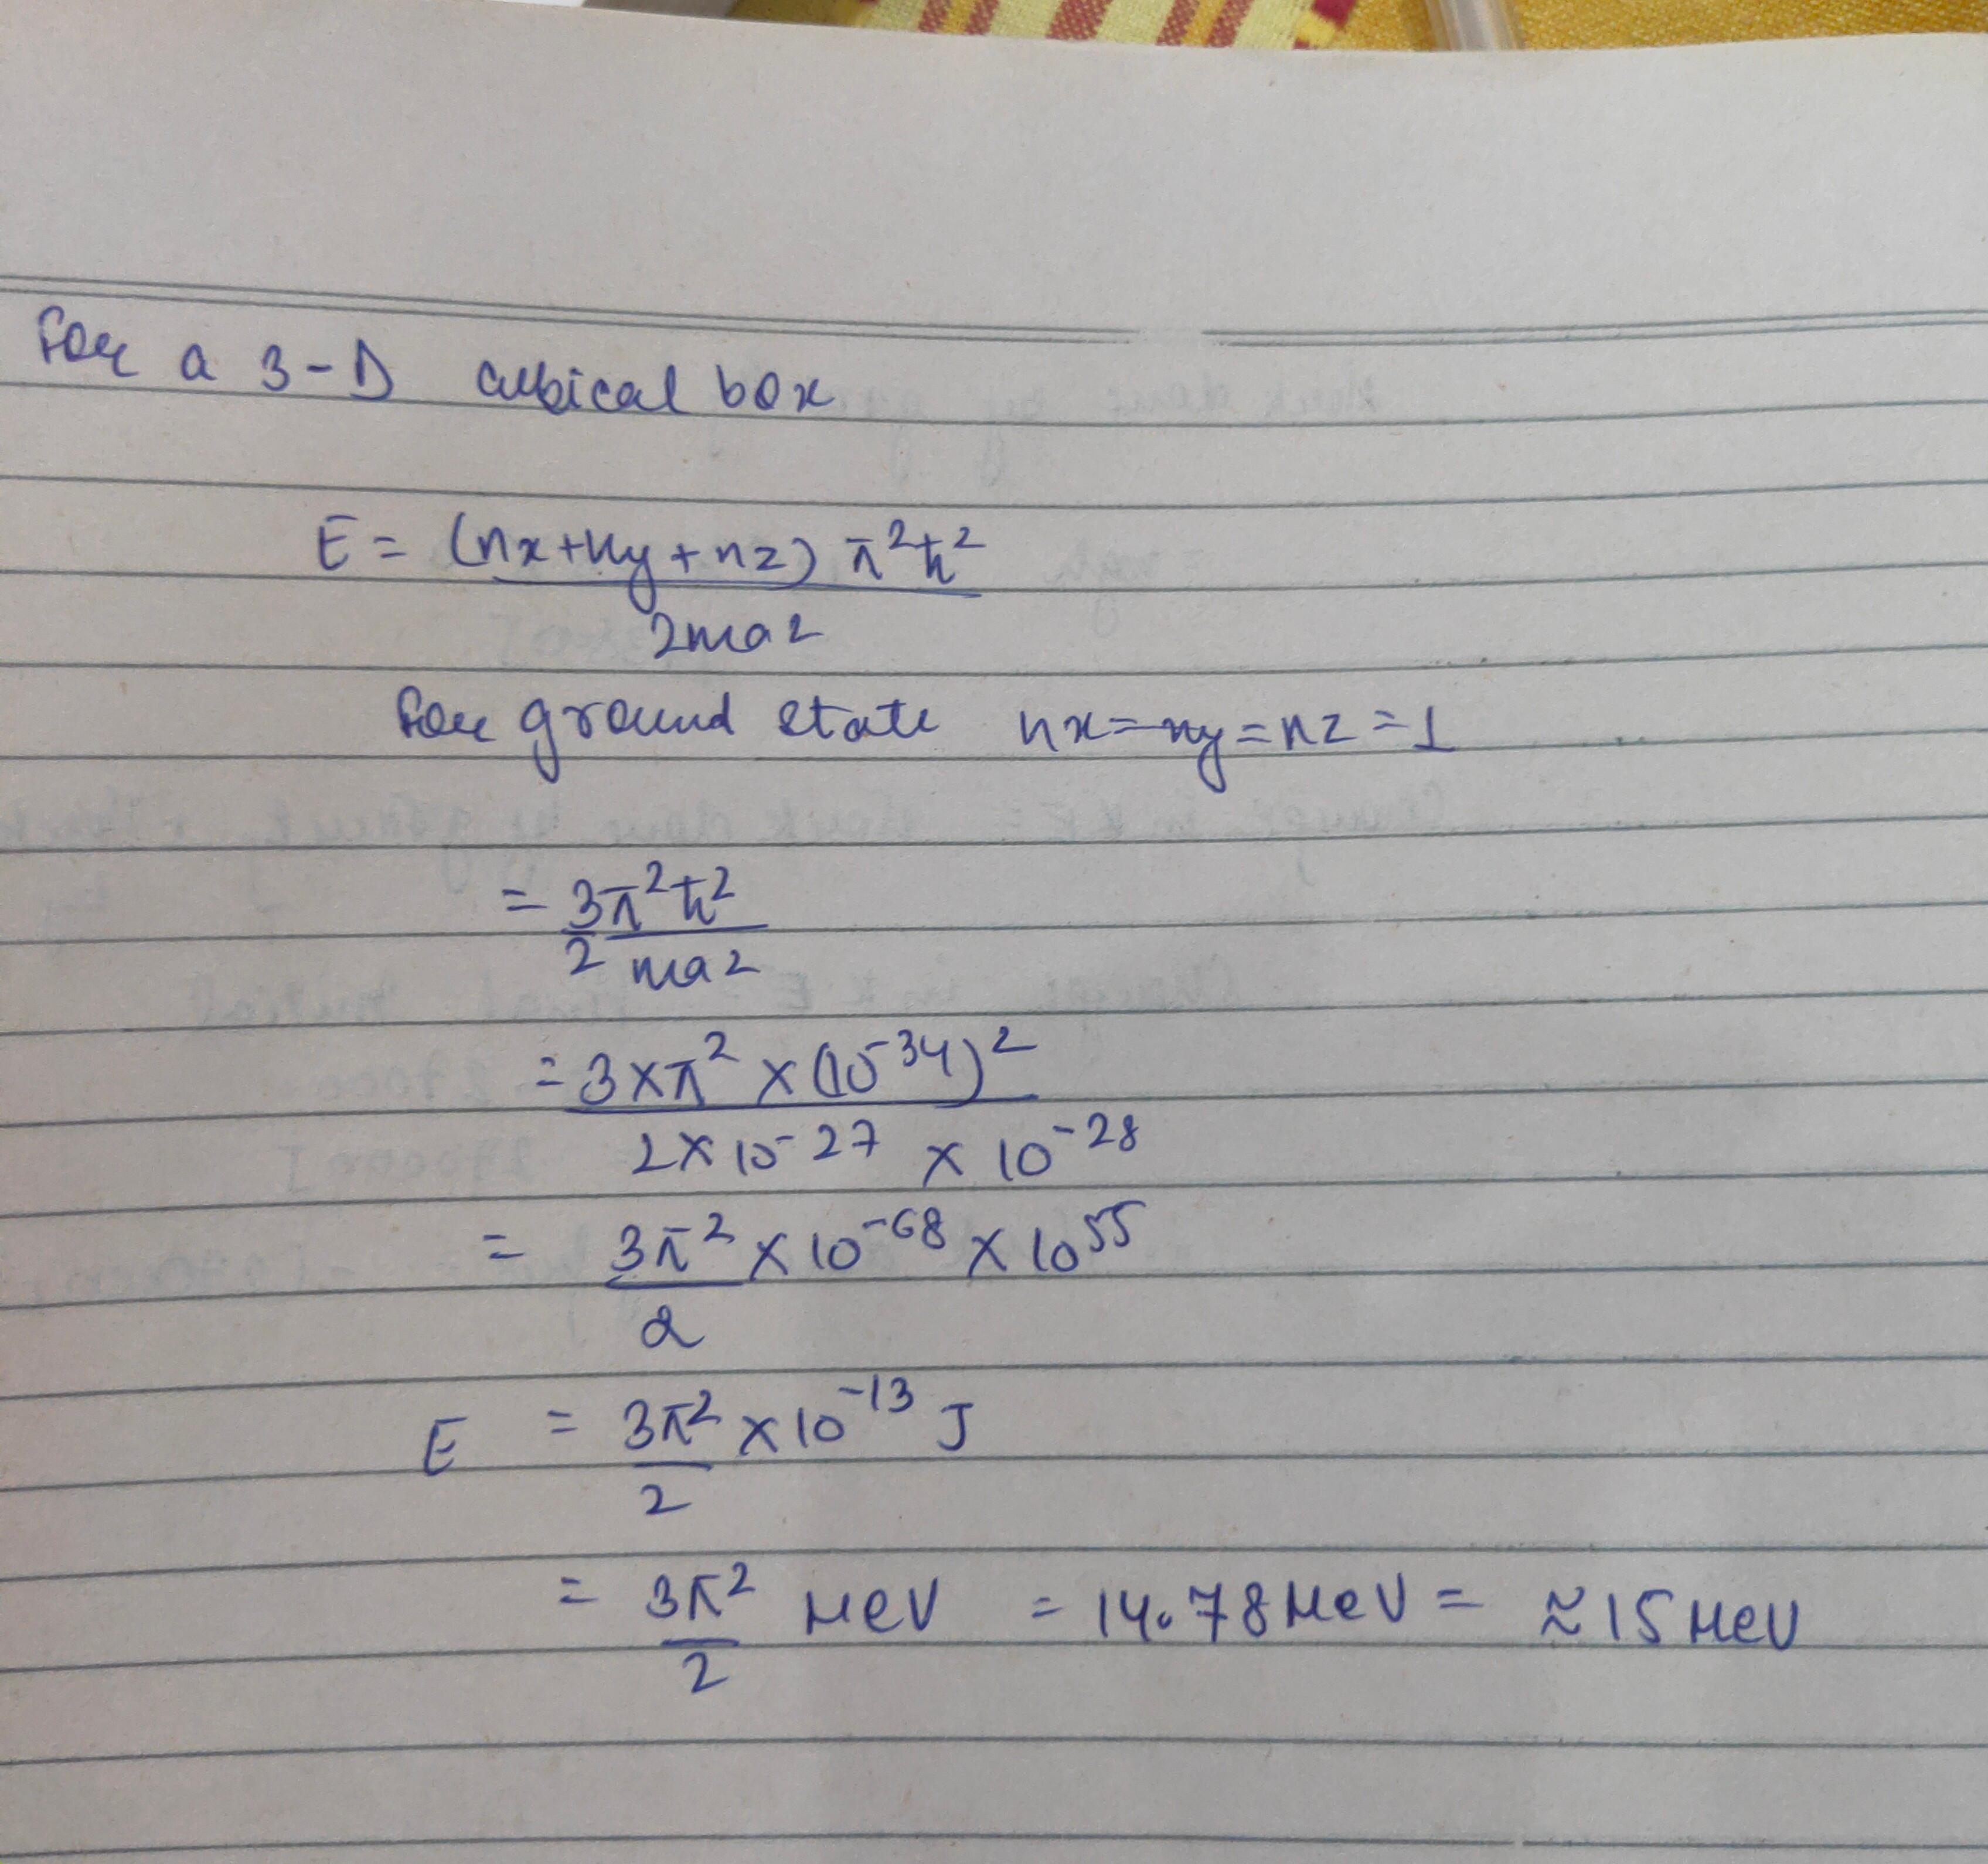 For a 3-D cubical box
E = (nx+ny+nz) π²ħ²
2ma2
For ground state nx=ny=nz=1
= 3π²ħ²
2 ma2
= 3×π² × (10⁻³⁴)²
2×10⁻²⁷ × 10⁻²⁸
= 3π² × 10⁻⁶⁸ × 10⁵⁵
2
E = 3π² × 10⁻¹³ J
2
= 3π² MeV = 14.78 MeV = ≈ 15 MeV
2